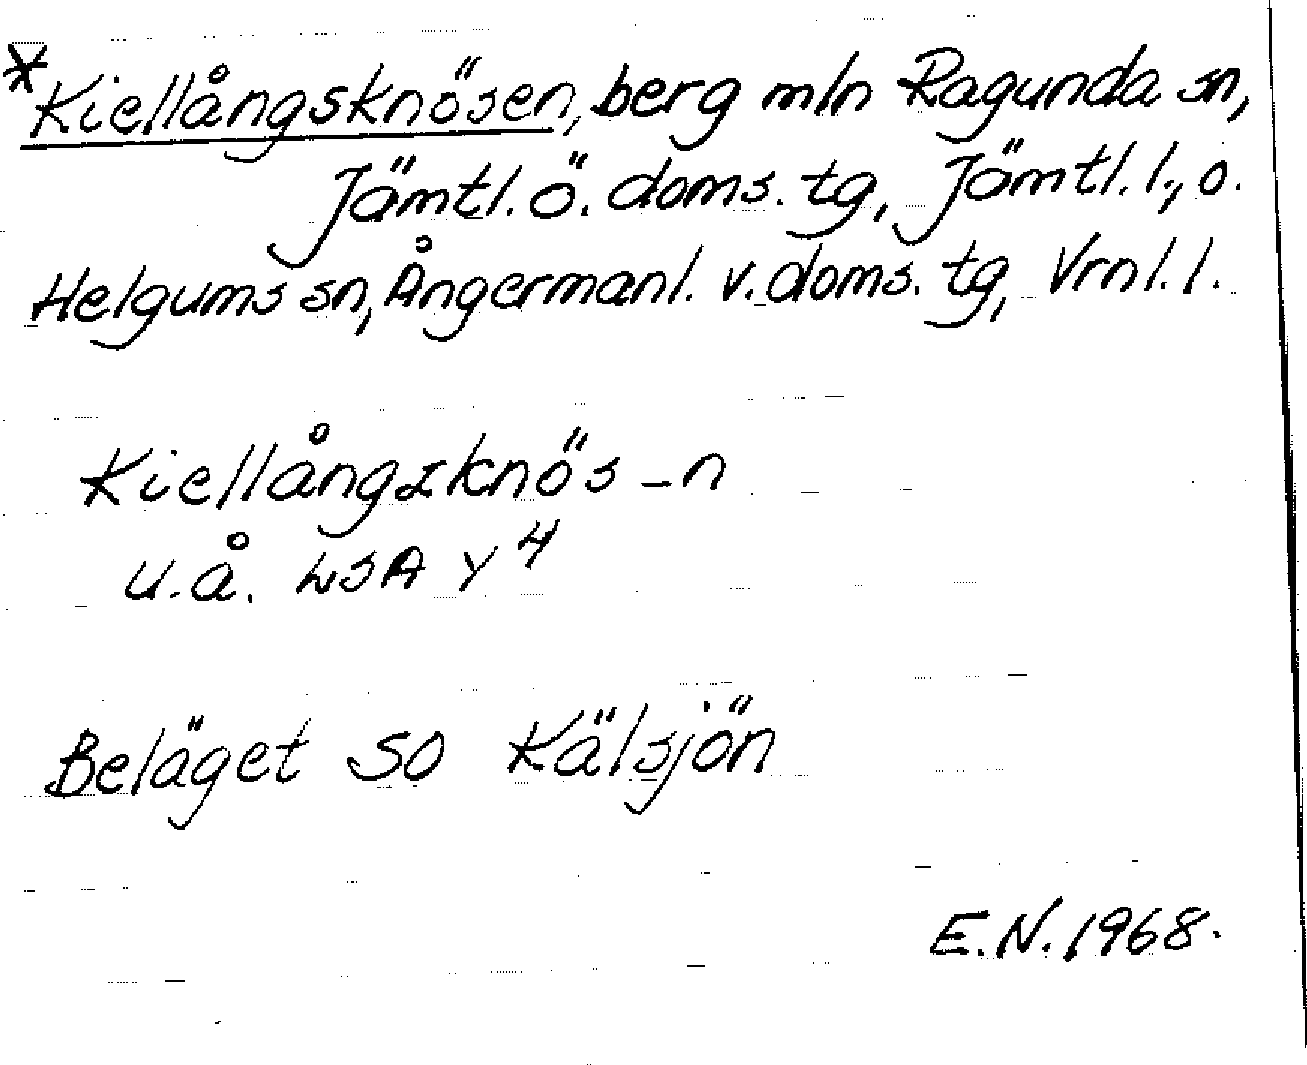 *Kiellångsknösen, berg mln Ragunda sn,
Jämtl. ö. doms. tg, Jämtl. l., o.
Helgums sn, Ångermanl. v. doms. tg, Vrnl. l.
Kiellångzknös_n
u.å. LSA Y4
Beläget SO Kälsjön
E.N. 1968.